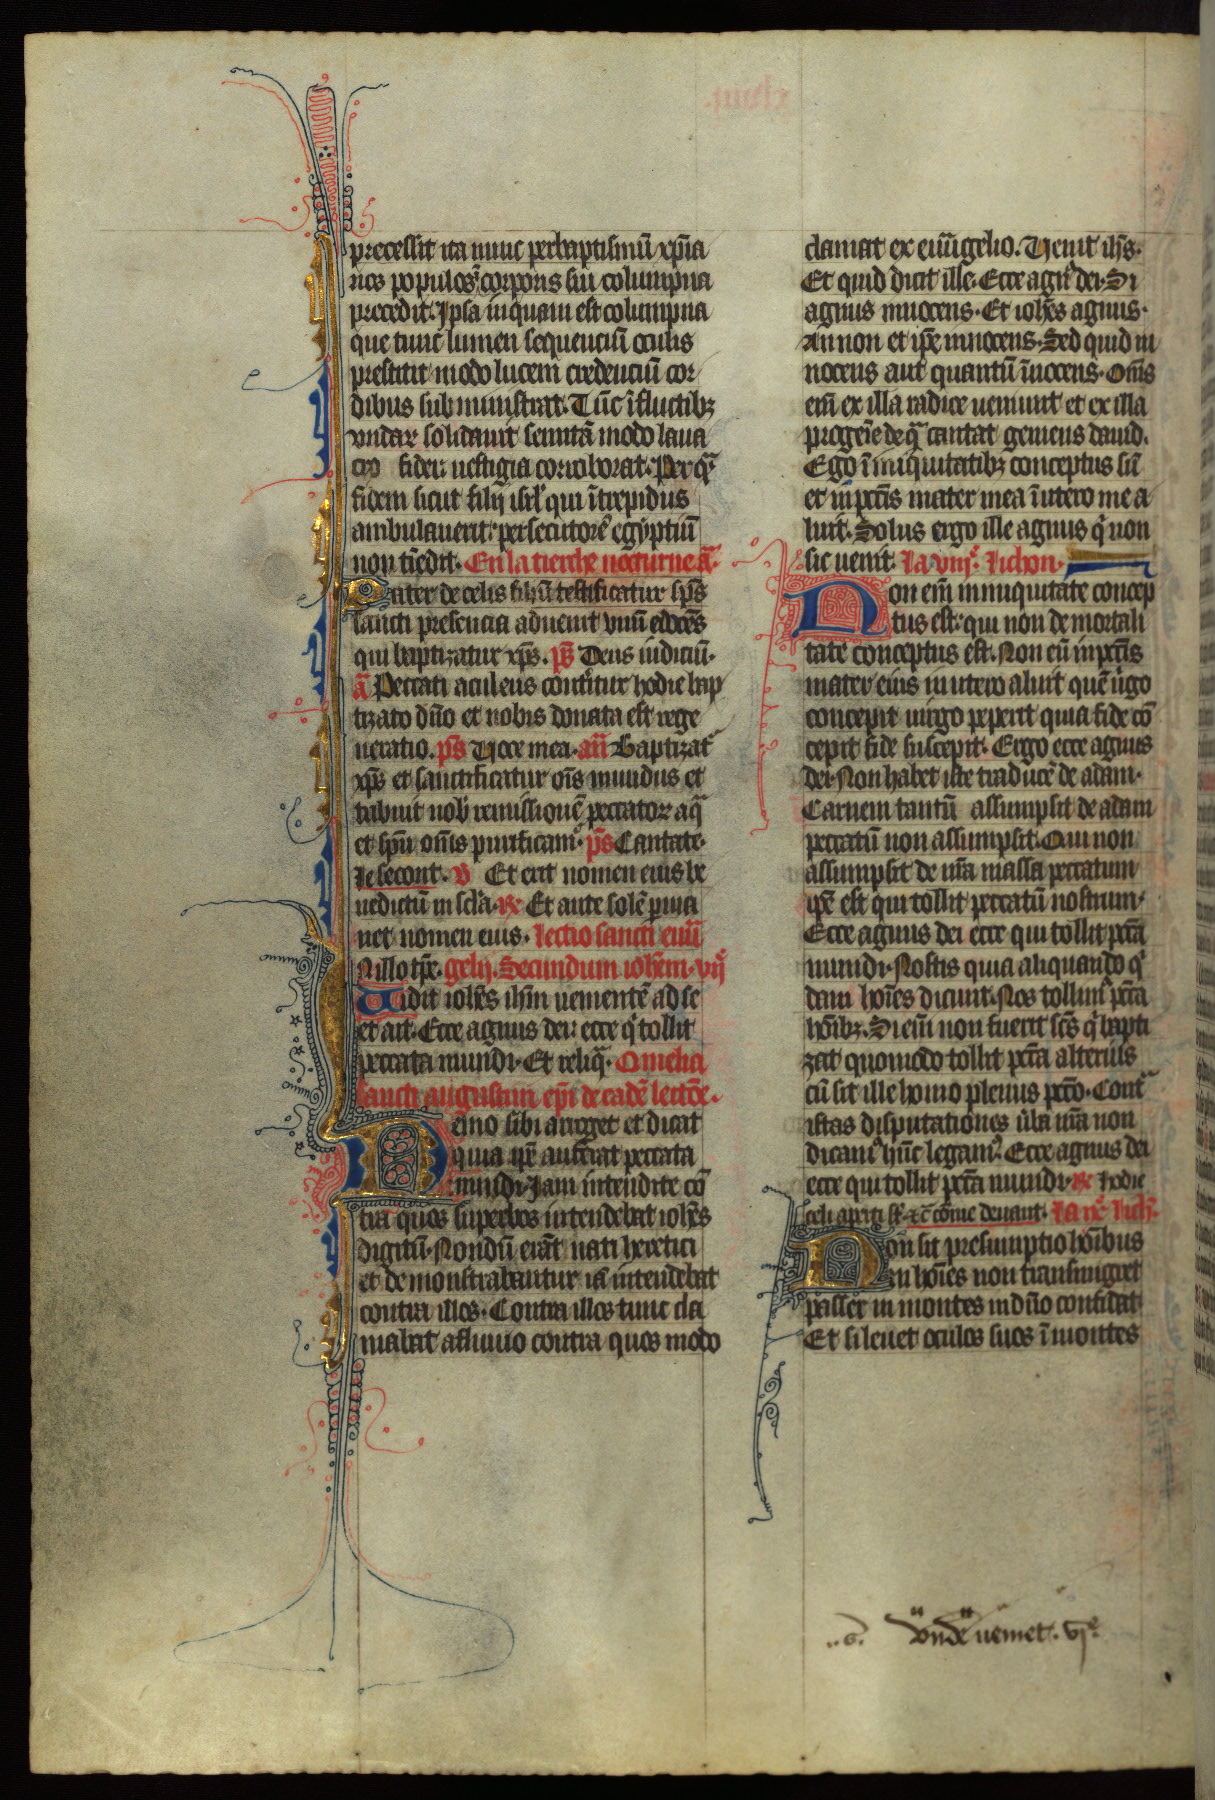 precessit ita nunc per baptismū xp̄ia
nos populos corporis sui columpna
precedit. Ipsa inquam est columpna
que tunc lumen sequenciū oculis
prestitit modo lucem credenciū cor
dibus subministrat. Tūc ī fluctibꝫ
undar solidauit semitā modo laua
cro fidei uestigia corroborat. Per qᵃ
fidem sicut filij isrl' qui ītrepidus
ambulauerit persecutorē egyptiū
non tīedit. En la tierche nocturne aᷓ.
Pater de celis filiū testificatur sp̄s
sancti presencia aduenit unū edocēs
qui baptizatur xp̄s. ps̄ Deus iudiciū.
aᷓ Peccati aculeus conterītur hodie bap
tizato dn̄o et nobis donata est rege
neratio. ps̄ Uoce mea. añ Baptizat'
xp̄s et sanctificatur oīs mundus et
tribuit nob' remissionē peccator aqᵃ
et spū om̄s purificam'. ps̄ Cantate.
le secont. v Et erit nomen eius be
nedictū in scl'a. R Et ante solē p̄ma
net nomen eius. Lectio sancti euū
N illo tp̄e. gelij. Secundum ioh̄em. vijᵉ
Uidit ioh̄es ih̄m uementē ad se
et ait. Ecce agnus dei: ecce qⁱ tollit
peccata mundi. Et reliqᵃ. Omelia
sancti augustini ep̄i de eadē lectōe.
Nemo sibi arroget et dicat
quia ip̄e auferat peccata
mundi. Iam intendite cō
tra quos superbos intendebat ioh̄es
digitū. Nondū erāt nati heretici
et demonstrabantur iā intendebat
contra illos. Contra illos tunc cla
mabat a fluuio contra quos modo
clamat ex euūgelio. Uenit ih̄s.
Et quid dicit ille. Ecce agn' dei. Si
agnus innocens. Et ioh̄es agnus.
An non et ip̄e innocens. Sed quid in
nocens aut quantū īnocens. Om̄s
em̄ ex illa radice ueniunt et ex illa
progenie de qᵃ cantat gemens dauid.
Ego ī iniquitatibꝫ conceptus sū
et in pctīs mater mea ī utero me a
luit. Solus ergo ille agnus qⁱ non
sic uenit. La viijᵉ. lichon.
Non em̄ in iniquitate concep
tus est: qui non de mortali
tate conceptus est. Non eū in pctīs
mater eius in utero aluit quē uīgo
concepit uirgo peperit quia fide cō
cepit fide suscepit. Ergo ecce agnus
dei. Non habet iste traducē de adam.
Carnem tantū assumpsit de adam
peccatū non assumpsit. Qui non
assumpsit de nr̄a massa peccatum
ip̄e est qui tollit peccatū nostrum.
Ecce agnus dei ecce qui tollit pctā
mundi. Nostis quia aliquando qⁱ
dam hoīes dicunt. Nos tollim' pctā
hoībꝫ. Si em̄ non fuerit sc̄s qⁱ bapti
zat quomodo tollit pctā alterius
cū sit ille homo plenus pctō. Contᵃ
istas disputationes u̇ba nr̄a non
dicam' hūc legam'. Ecce agnus dei
ecce qui tollit pctā mundi. R Hodie
celi aperti st̄ ⁊c̄ cōme deuant. La ixᵉ lich̄.
Non sit presumptio hoībus
en hoīes non transmigret
passer in montes in dn̄o confidat
Et si leuet oculos suos ī montes
unde ueniet. vjᵉ.